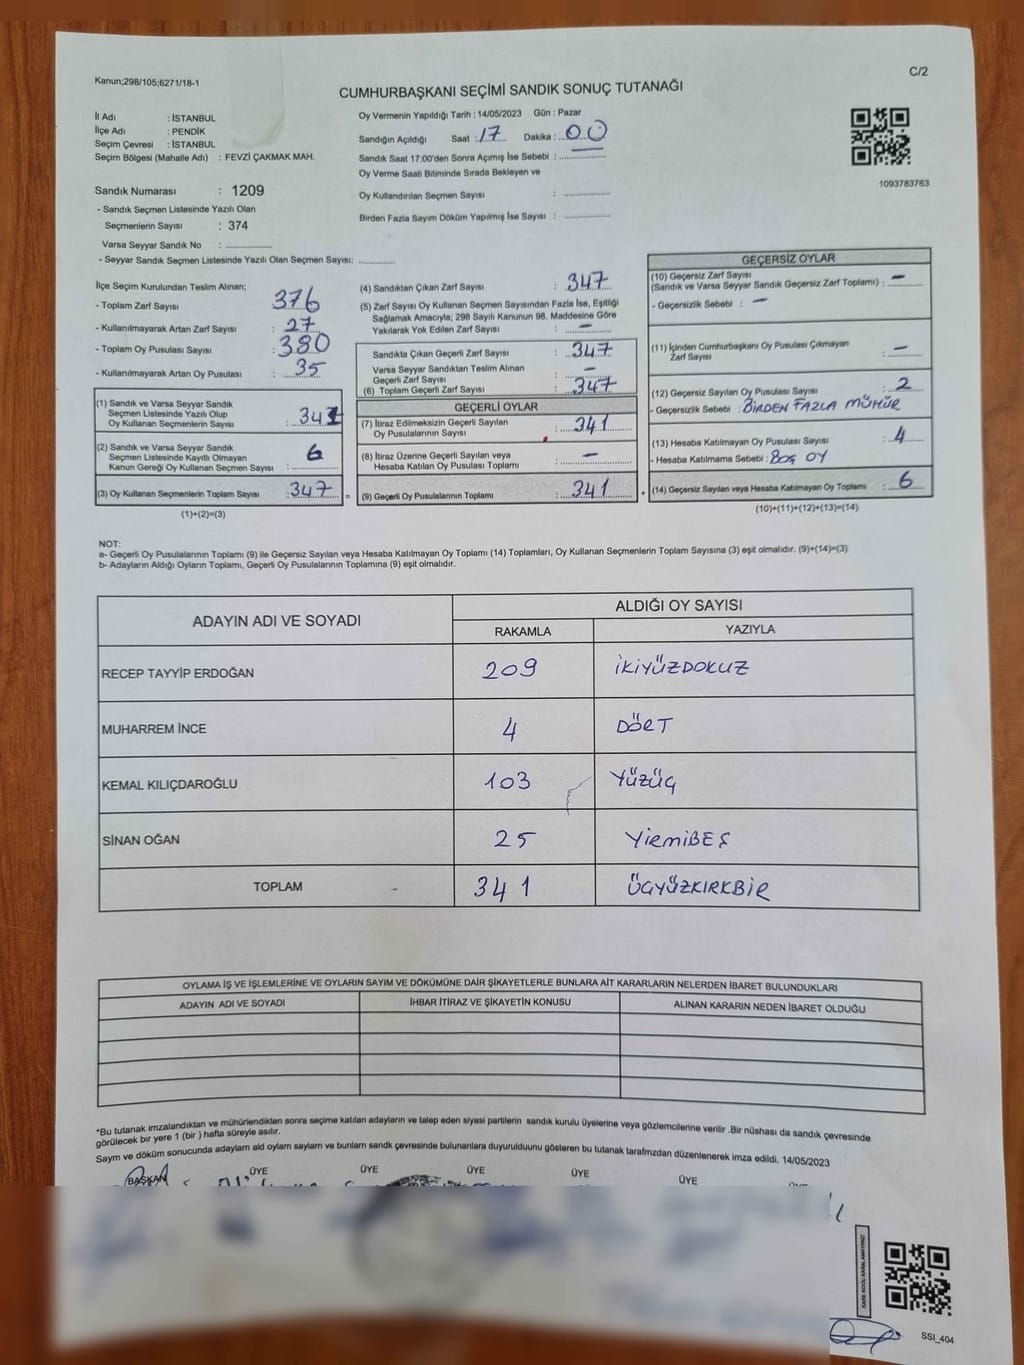 Kanun;298/105;6271/18-1
C/2
CUMHURBAŞKANI SEÇİMİ SANDIK SONUÇ TUTANAĞI
İl Adı : İSTANBUL
İlçe Adı : PENDİK
Seçim Çevresi : İSTANBUL
Seçim Bölgesi (Mahalle Adı) : FEVZİ ÇAKMAK MAH.
Sandık Numarası : 1209
- Sandık Seçmen Listesinde Yazılı Olan
Seçmenlerin Sayısı : 374
Varsa Seyyar Sandık No : ................
- Seyyar Sandık Seçmen Listesinde Yazılı Olan Seçmen Sayısı: ............
Oy Vermenin Yapıldığı Tarih : 14/05/2023 Gün : Pazar
Sandığın Açıldığı Saat : 17 Dakika : 00
Sandık Saat 17:00'den Sonra Açımış İse Sebebi : ................
Oy Verme Saati Bitiminde Sırada Bekleyen ve
Oy Kullandırılan Seçmen Sayısı : ................
Birden Fazla Sayım Döküm Yapılmış İse Sayısı : ................
1093783763
İlçe Seçim Kurulundan Teslim Alınan;
- Toplam Zarf Sayısı 376
- Kullanılmayarak Artan Zarf Sayısı : 27
- Toplam Oy Pusulası Sayısı : 380
- Kullanılmayarak Artan Oy Pusulası : 35
(1) Sandık ve Varsa Seyyar Sandık
Seçmen Listesinde Yazılı Olup
Oy Kullanan Seçmenlerin Sayısı : 341
(2) Sandık ve Varsa Seyyar Sandık
Seçmen Listesinde Kayıtlı Olmayan
Kanun Gereği Oy Kullanan Seçmen Sayısı : 6
(3) Oy Kullanan Seçmenlerin Toplam Sayısı : 347 =
(1)+(2)=(3)
(4) Sandıktan Çıkan Zarf Sayısı : 347
(5) Zarf Sayısı Oy Kullanan Seçmen Sayısından Fazla İse, Eşitliği
Sağlamak Amacıyla; 298 Sayılı Kanunun 98. Maddesine Göre
Yakılarak Yok Edilen Zarf Sayısı : —
Sandıkta Çıkan Geçerli Zarf Sayısı : 347
Varsa Seyyar Sandıktan Teslim Alınan
Geçerli Zarf Sayısı : —
(6) Toplam Geçerli Zarf Sayısı : 347
GEÇERLİ OYLAR
(7) İtiraz Edilmeksizin Geçerli Sayılan
Oy Pusulalarının Sayısı : 341
(8) İtiraz Üzerine Geçerli Sayılan veya
Hesaba Katılan Oy Pusulası Toplamı : —
(9) Geçerli Oy Pusulalarının Toplamı : 341 +
GEÇERSİZ OYLAR
(10) Geçersiz Zarf Sayısı
(Sandık ve Varsa Seyyar Sandık Geçersiz Zarf Toplamı) : —
- Geçersizlik Sebebi : —
(11) İçinden Cumhurbaşkanı Oy Pusulası Çıkmayan
Zarf Sayısı : —
(12) Geçersiz Sayılan Oy Pusulası Sayısı : 2
- Geçersizlik Sebebi : BİRDEN FAZLA MÜHÜR
(13) Hesaba Katılmayan Oy Pusulası Sayısı : 4
- Hesaba Katılmama Sebebi : BOŞ OY
(14) Geçersiz Sayılan veya Hesaba Katılmayan Oy Toplamı : 6
(10)+(11)+(12)+(13)=(14)
NOT:
a- Geçerli Oy Pusulalarının Toplamı (9) ile Geçersiz Sayılan veya Hesaba Katılmayan Oy Toplamı (14) Toplamları, Oy Kullanan Seçmenlerin Toplam Sayısına (3) eşit olmalıdır. (9)+(14)=(3)
b- Adayların Aldığı Oyların Toplamı, Geçerli Oy Pusulalarının Toplamına (9) eşit olmalıdır.
ADAYIN ADI VE SOYADI ALDIĞI OY SAYISI
RAKAMLA YAZIYLA
RECEP TAYYİP ERDOĞAN 209 İKİYÜZDOKUZ
MUHARREM İNCE 4 DÖRT
KEMAL KILIÇDAROĞLU 103 YÜZÜÇ
SİNAN OĞAN 25 YİRMİBEŞ
TOPLAM 341 ÜÇYÜZKIRKBİR
OYLAMA İŞ VE İŞLEMLERİNE VE OYLARIN SAYIM VE DÖKÜMÜNE DAİR ŞİKAYETLERLE BUNLARA AİT KARARLARIN NELERDEN İBARET BULUNDUKLARI
ADAYIN ADI VE SOYADI İHBAR İTİRAZ VE ŞİKAYETİN KONUSU ALINAN KARARIN NEDEN İBARET OLDUĞU
*Bu tutanak imzalandıktan ve mühürlendikten sonra seçime katılan adayların ve talep eden siyasi partilerin sandık kurulu üyelerine veya gözlemcilerine verilir .Bir nüshası da sandık çevresinde
görülecek bir yere 1 (bir ) hafta süreyle asılır.
Sayım ve döküm sonucunda adayların ald oyların sayların ve bunların sandk çevresinde bulunanlara duyurulduunu gösteren bu tutanak tarafmzdan düzenlenerek imza edildi. 14/05/2023
BAŞKAN ÜYE ÜYE ÜYE ÜYE ÜYE
SSI_404